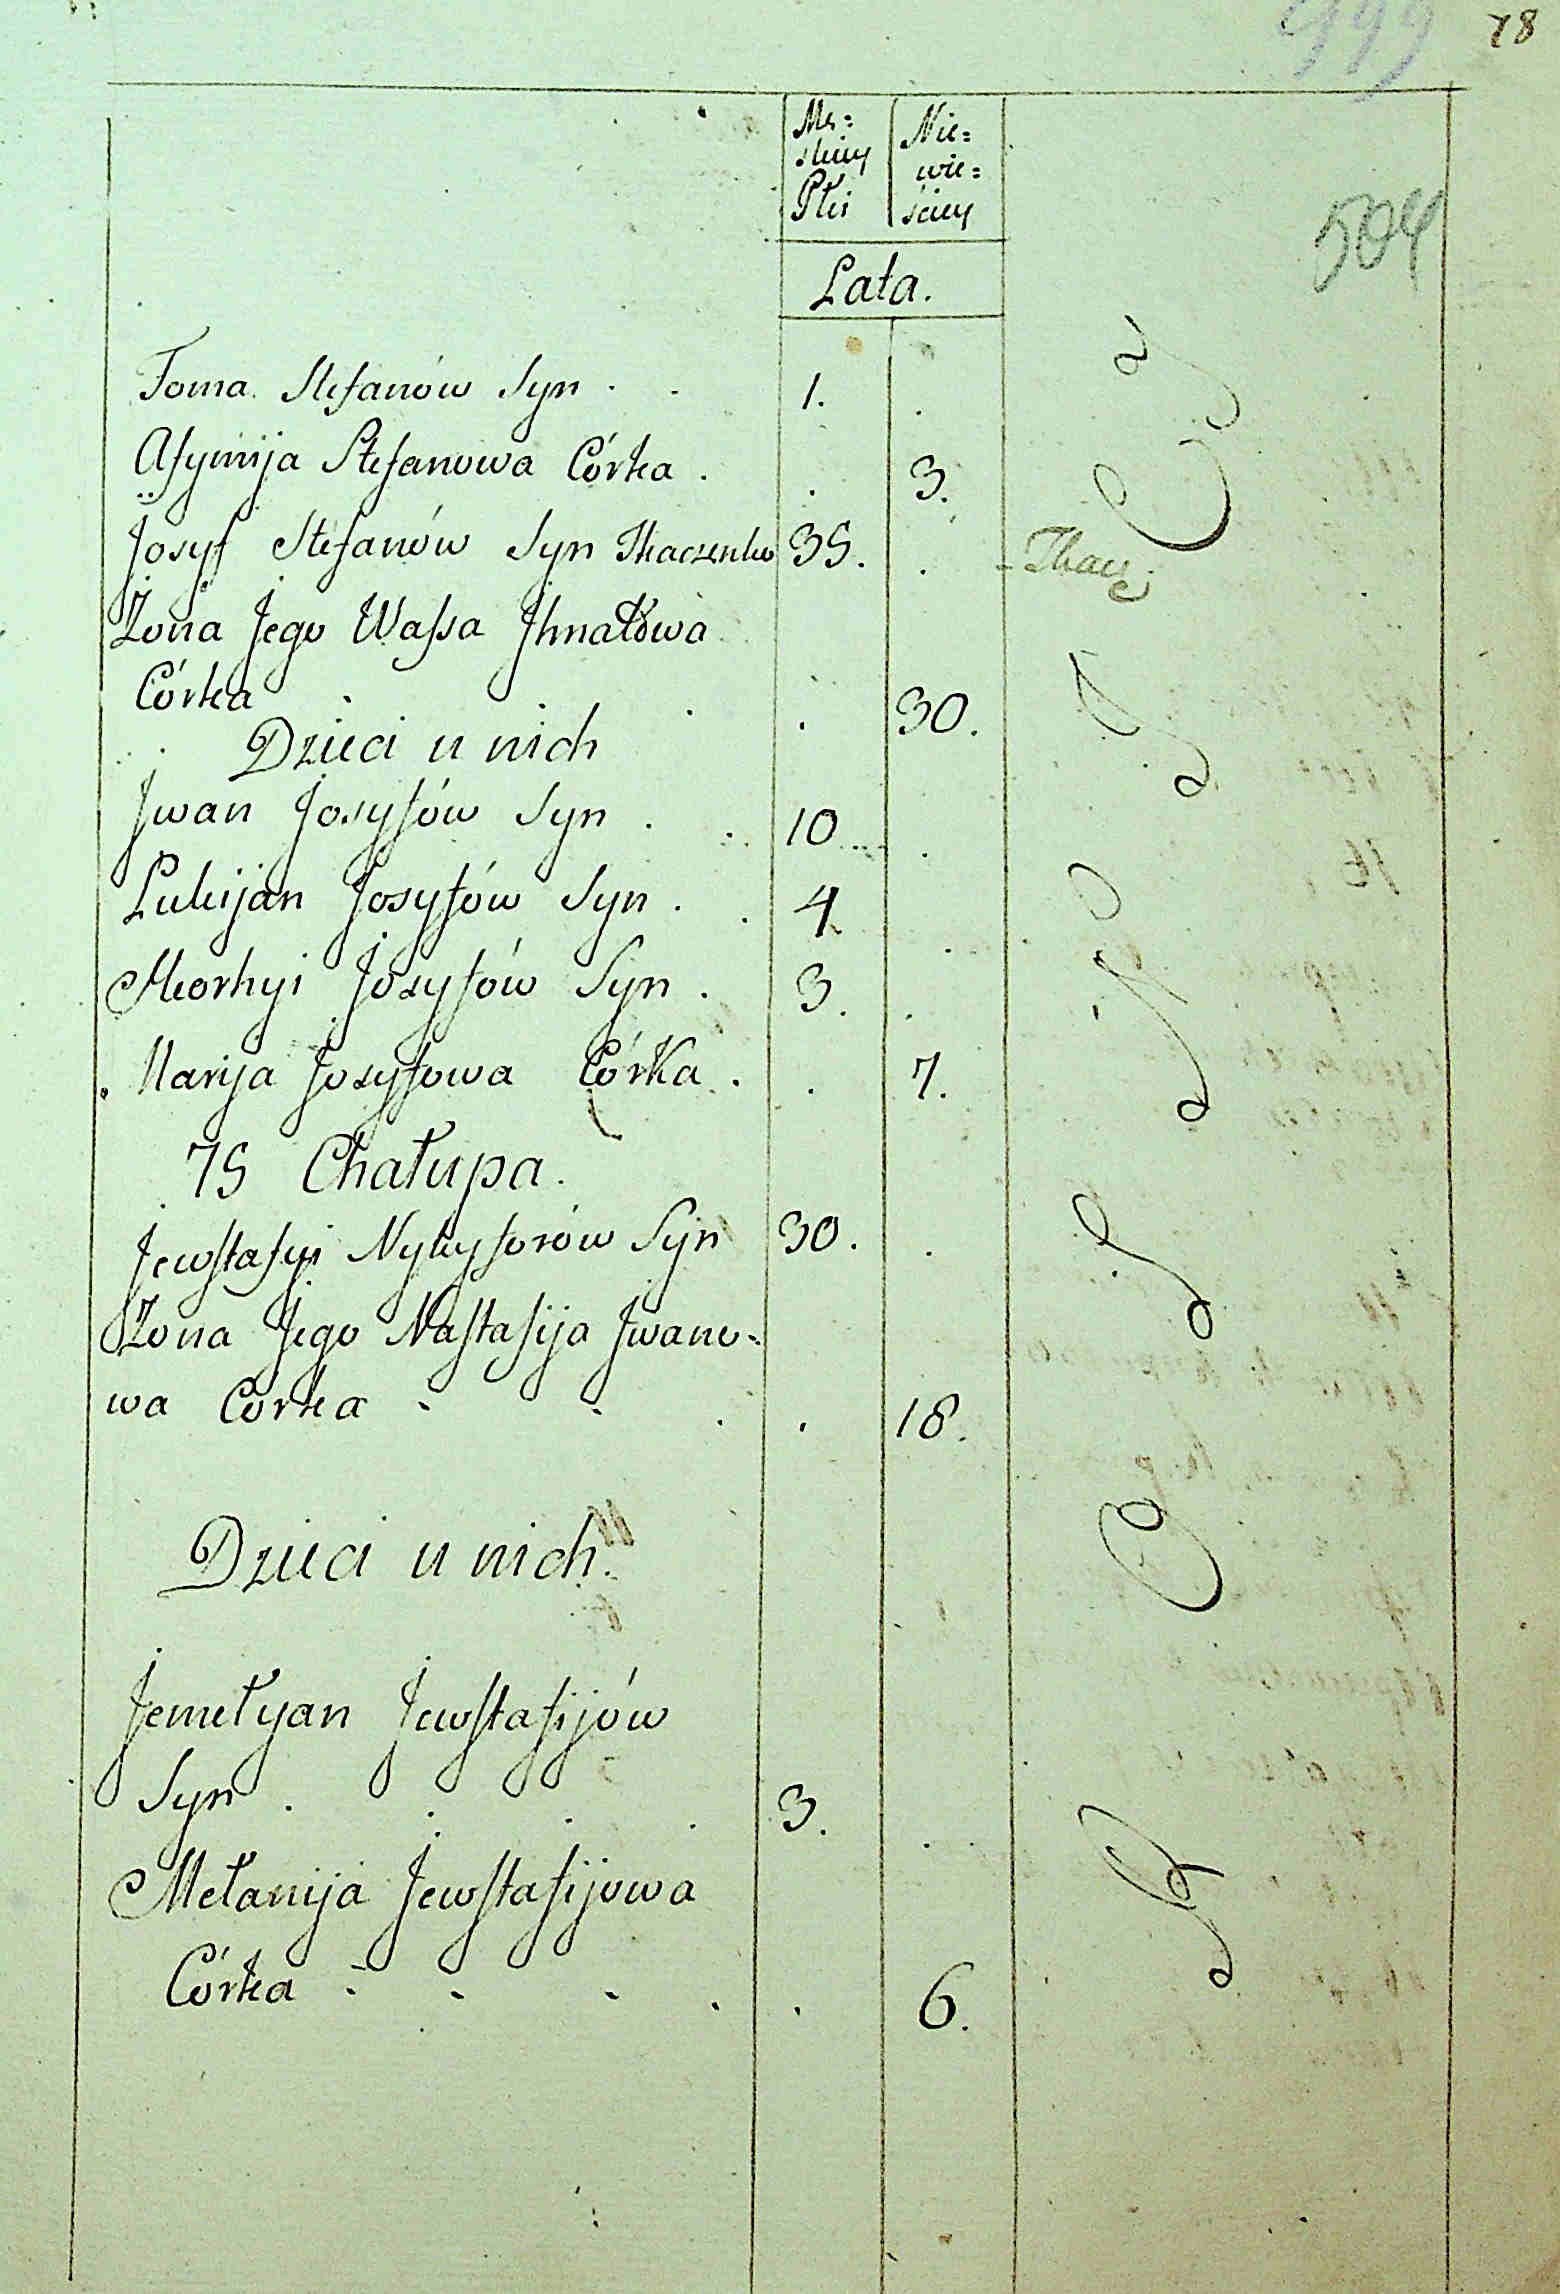 78
504
Mę= Nie=
skiey wie=
Płci ściey
Lata.
Foma Stefanów Syn 1.
Afymija Stefanowa Córka 3.
Josyf Stefanów Syn Tkaczenko 35. Tkacz
Żona Jego Waſsa Jhnatowa
Córka 30.
Dzieci u nich
Jwan Josyfów Syn 10
Lukijan Josyfów Syn 4
Heorhyi Josyfów Syn 3.
Marija Josyfowa Córka 7.
75 Chałupa.
Jewſtafyi Nykyforów Syn 30.
Żona Jego Naſtaſija Jwano=
wa Corka 18.
Dzieci u nich.
Jemełyan Jewſtafijów
Syn 3.
Mełanija Jewſtafijowa
Córka 6.